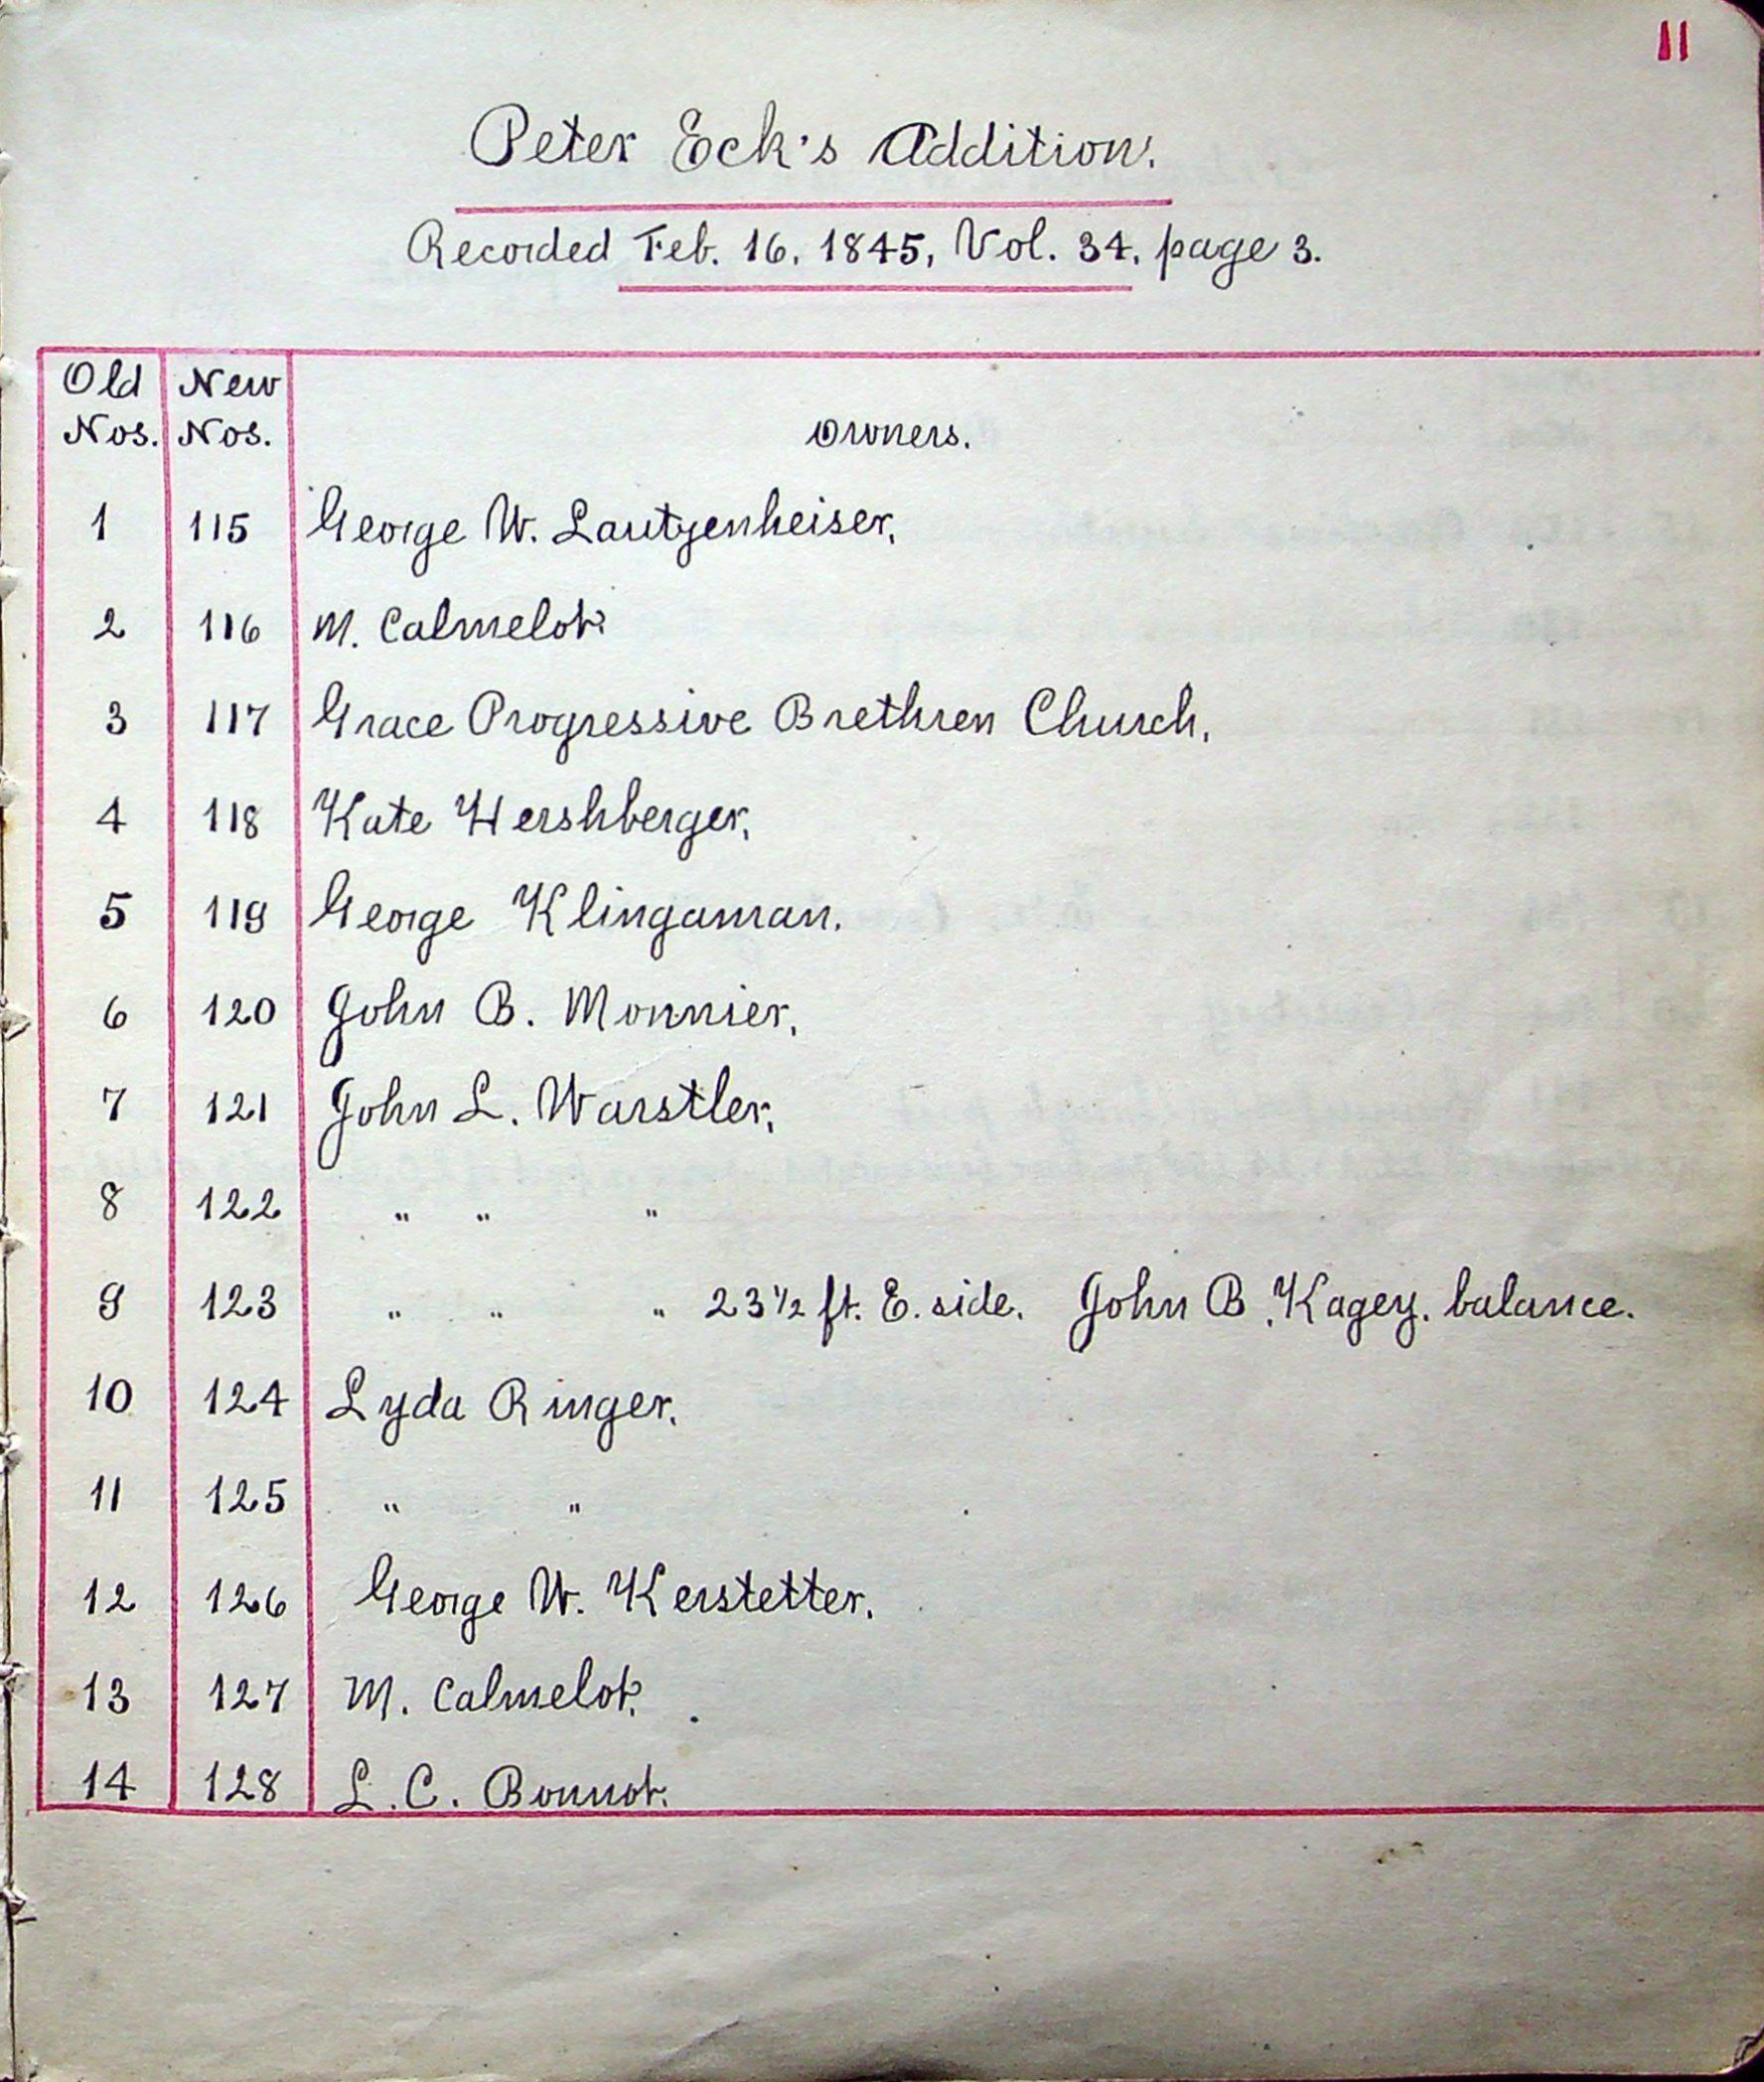 11
Peter Eck's Addition.
Recorded Feb. 16, 1845, Vol. 34, page 3.
Old Nos. New Nos. Owners.
1 115 George W. Lautzenheiser.
2 116 M. Calmelot.
3 117 Grace Progressive Brethren Church.
4 118 Kate Hershberger.
5 119 George Klingaman.
6 120 John B. Monnier.
7 121 John L. Warstler.
8 122 " " "
9 123 " " " 23 1/2 ft. E. side. John B. Kagey. balance.
10 124 Lyda Ringer.
11 125 " "
12 126 George W. Kerstetter.
13 127 M. Calmelot.
14 128 L. C. Bonnot.